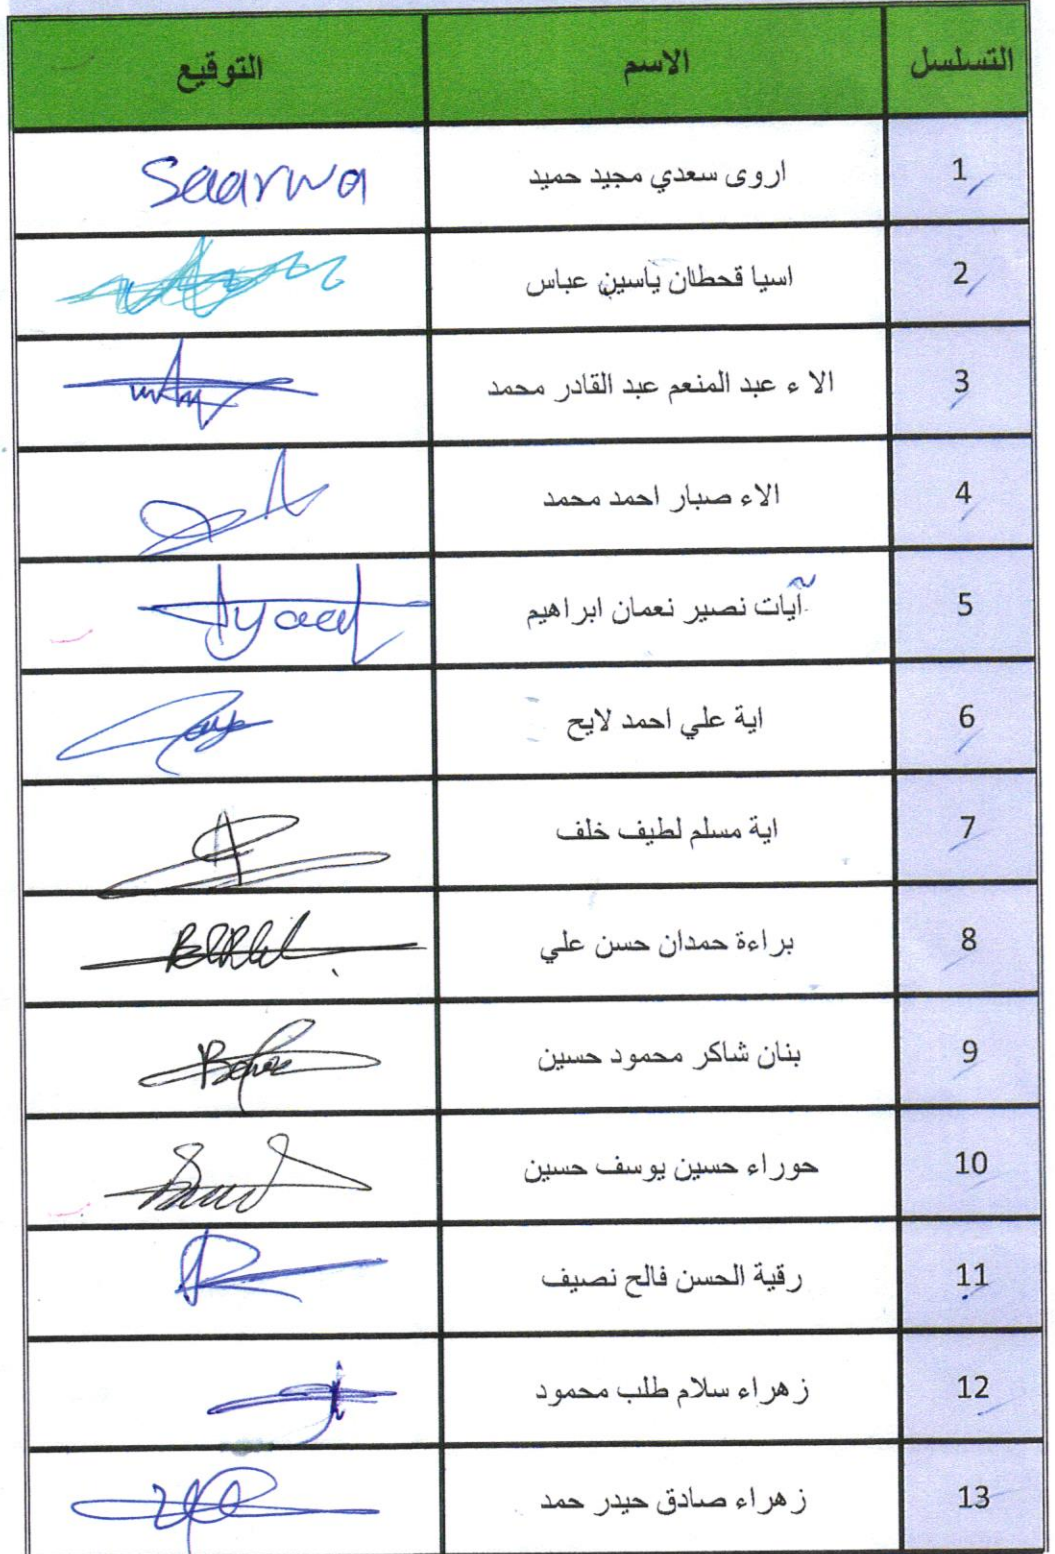 التسلسل الاسم التوقيع
1 اروى سعدي مجيد حميد Saarwa
2 اسيا قحطان ياسين عباس
3 الا ء عبد المنعم عبد القادر محمد
4 الاء صبار احمد محمد
5 آيات نصير نعمان ابراهيم
6 اية علي احمد لايح
7 اية مسلم لطيف خلف
8 براءة حمدان حسن علي
9 بنان شاكر محمود حسين
10 حوراء حسين يوسف حسين
11 رقية الحسن فالح نصيف
12 زهراء سلام طلب محمود
13 زهراء صادق حيدر حمد